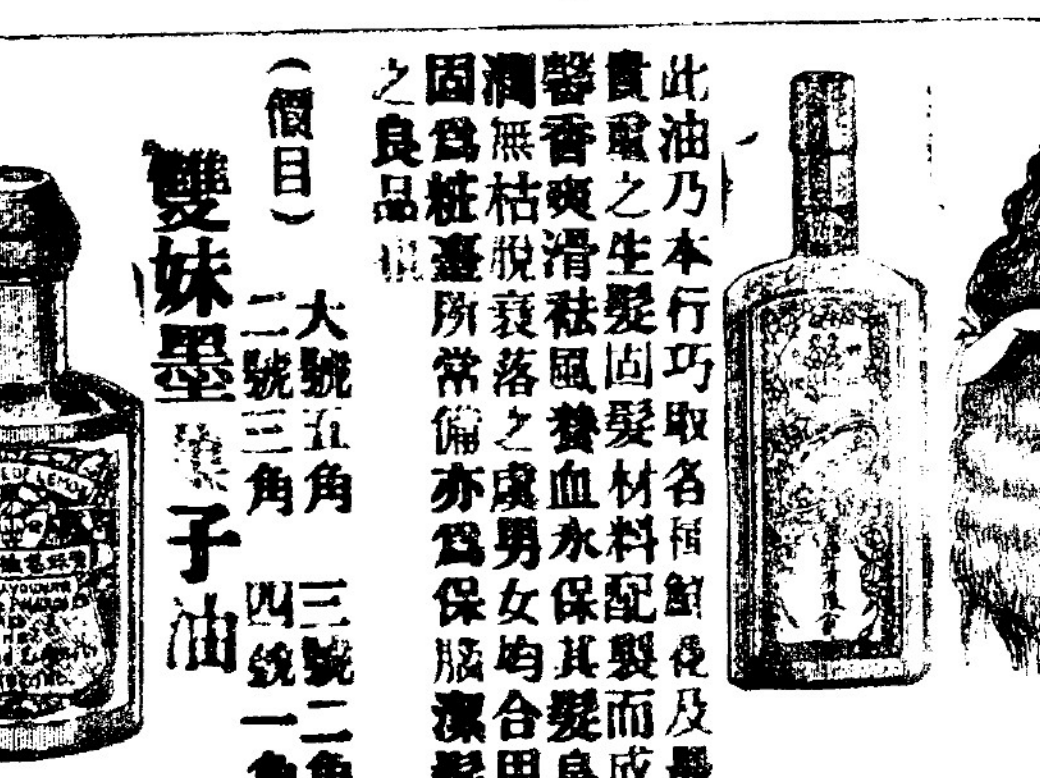 此油乃本行巧取名種鮮花及最
貴重之生髮固髮材料配製而成
馨香爽滑祛風養血永保其髮烏
潤無枯脫衰落之虞男女均合用
固為粧臺所常備亦為保腦潔髮
之良品也
(價目)
大號五角 三號二角
二號三角 四號一角
雙妹墨
子油